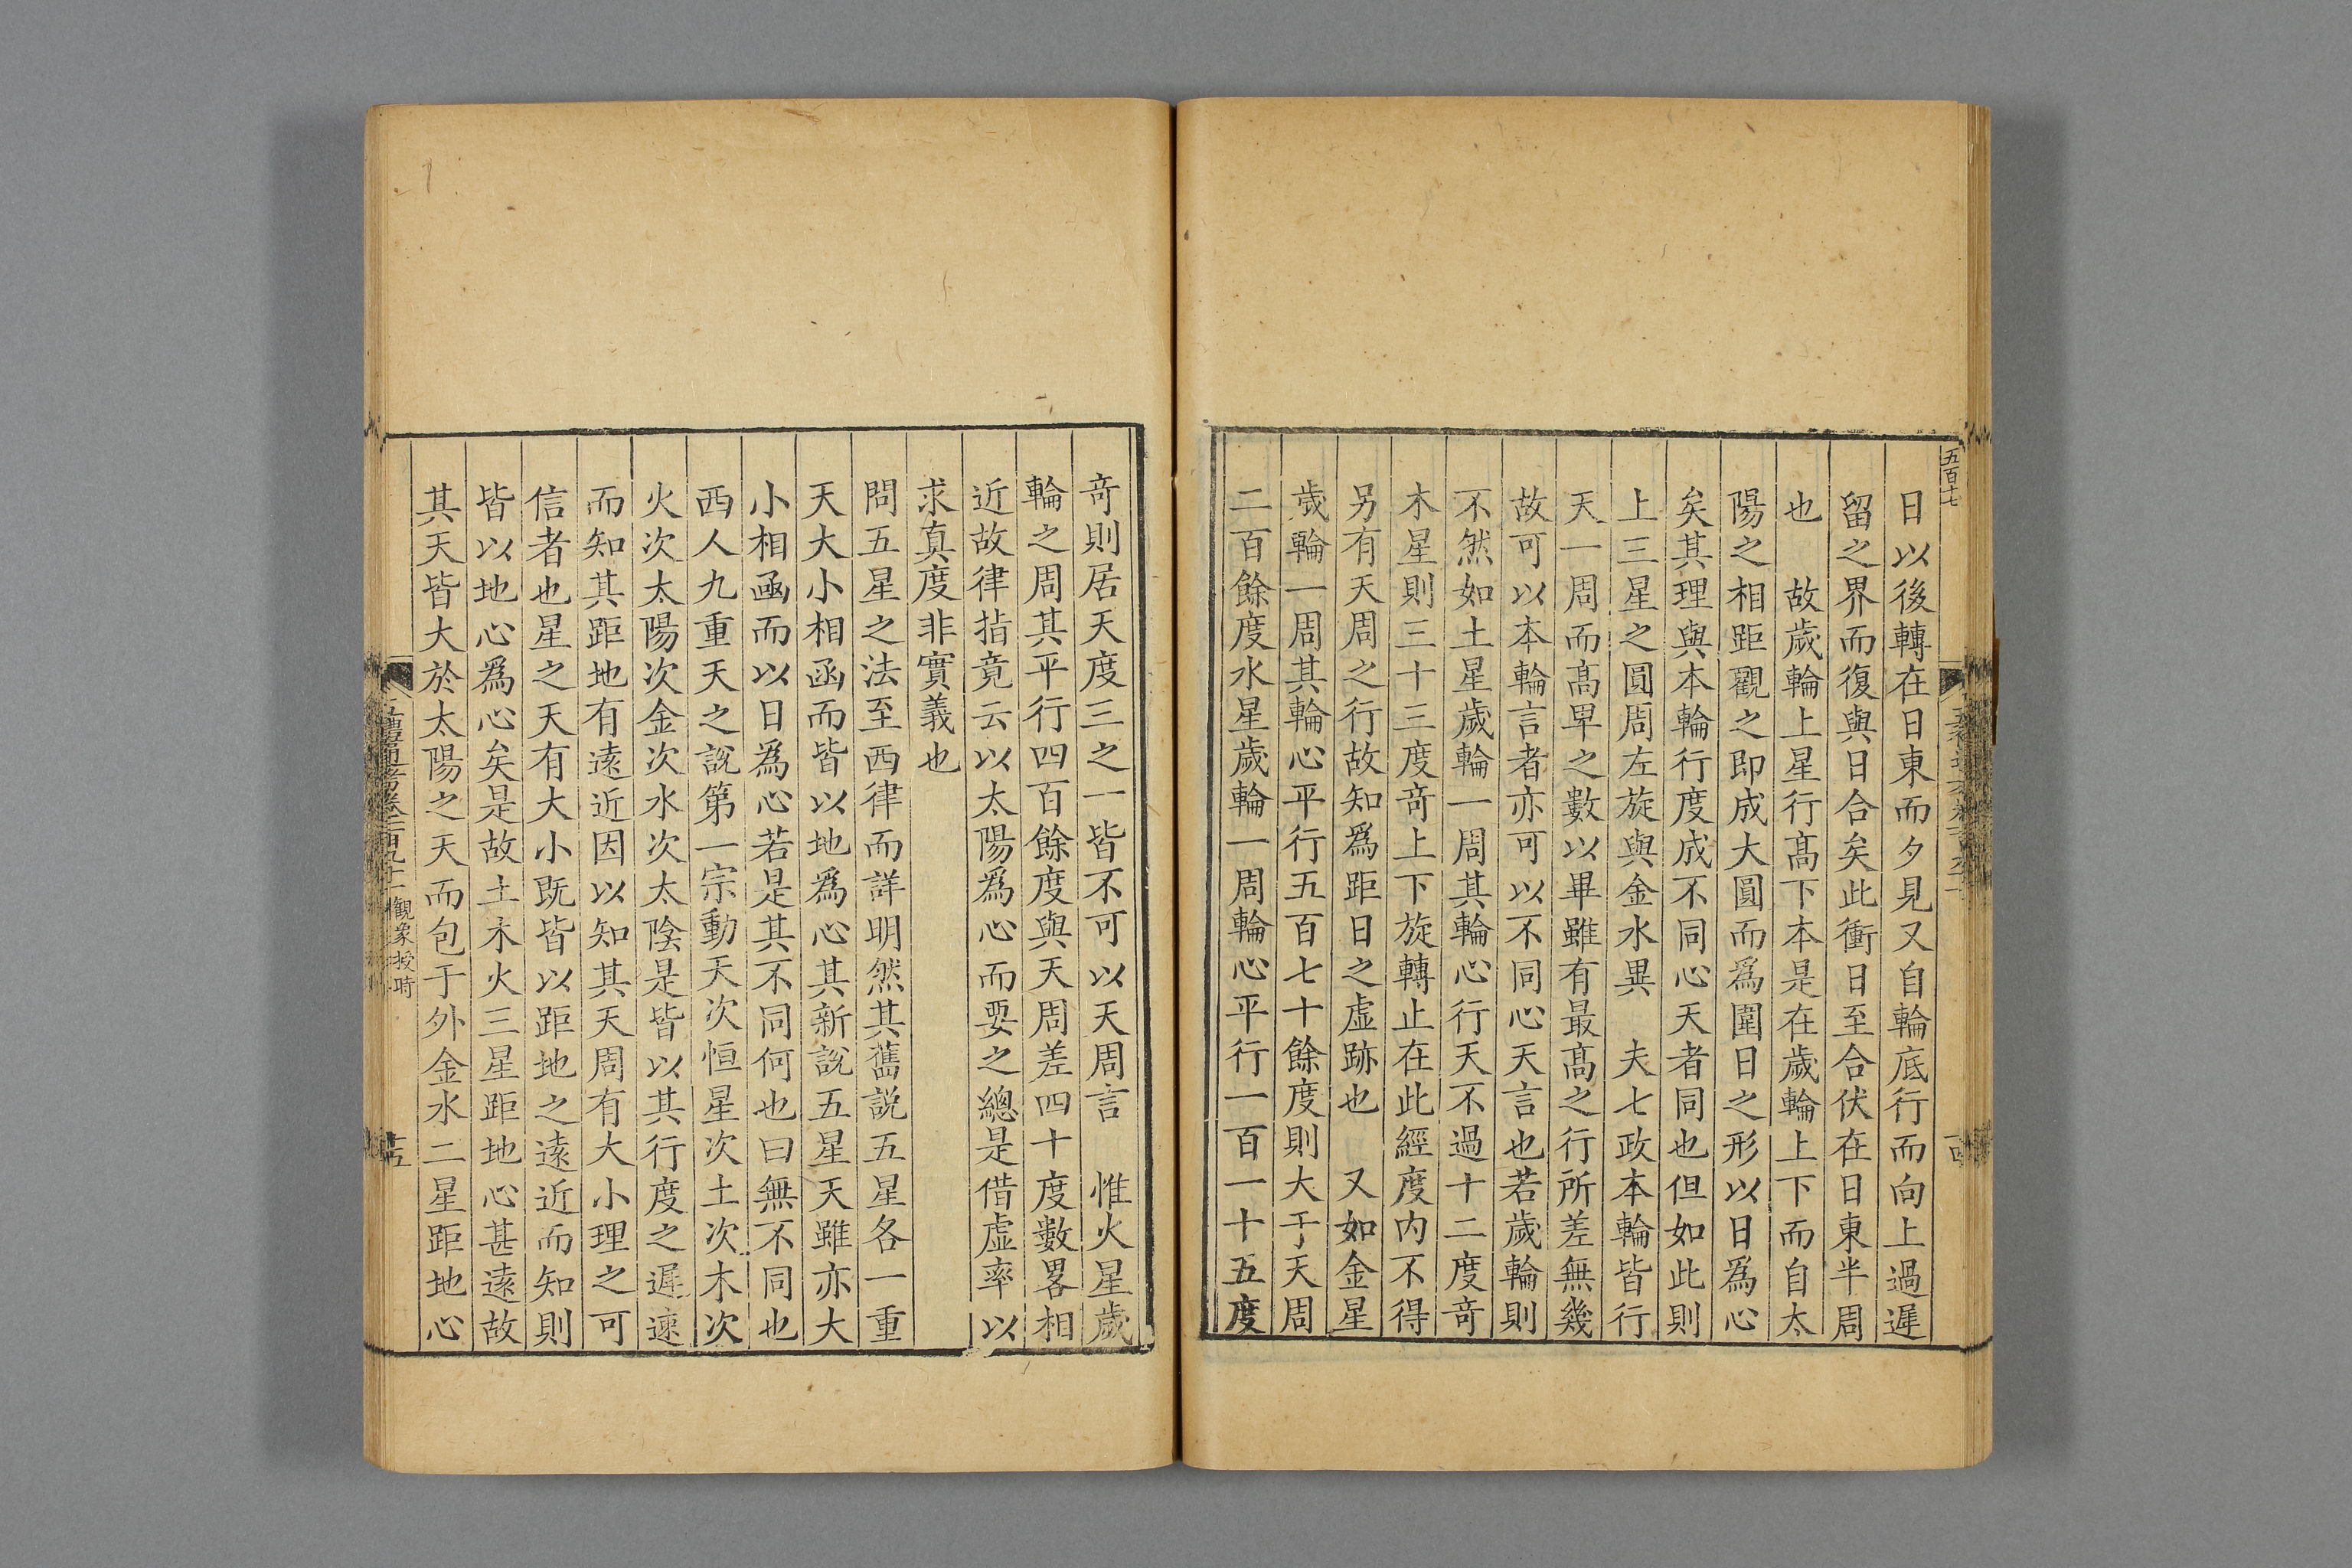 五百十七
日以後轉在日東而夕見又自輪底行而向上過遲
留之界而復與日合矣此衝日至合伏在日東半周
也　故歲輪上星行髙下本是在歲輪上下而自太
陽之相距觀之即成大圓而為圍日之形以日為心
矣其理與本輪行度成不同心天者同也但如此則
上三星之圓周左旋與金水異　夫七政本輪皆行
天一周而髙卑之數以畢雖有最髙之行所差無幾
故可以本輪言者亦可以不同心天言也若歲輪則
不然如土星歲輪一周其輪心行天不過十二度竒
木星則三十三度竒上下旋轉止在此經度内不得
另有天周之行故知為距日之虛跡也　又如金星
歲輪一周其輪心平行五百七十餘度則大于天周
二百餘度水星歲輪一周輪心平行一百一十五度
竒則居天度三之一皆不可以天周言　惟火星歲
輪之周其平行四百餘度與天周差四十度數畧相
近故律指竟云以太陽為心而要之總是借虛率以
求真度非實義也
問五星之法至西律而詳明然其舊説五星各一重
天大小相函而皆以地為心其新説五星天雖亦大
小相函而以日為心若是其不同何也曰無不同也
西人九重天之説第一宗動天次恒星次土次木次
火次太陽次金次水次太陰是皆以其行度之遲速
而知其距地有遠近因以知其天周有大小理之可
信者也星之天有大小既皆以距地之遠近而知則
皆以地心為心矣是故土木火三星距地心甚遠故
其天皆大於太陽之天而包于外金水二星距地心
五禮通考卷一百九十一 觀象授時
十五